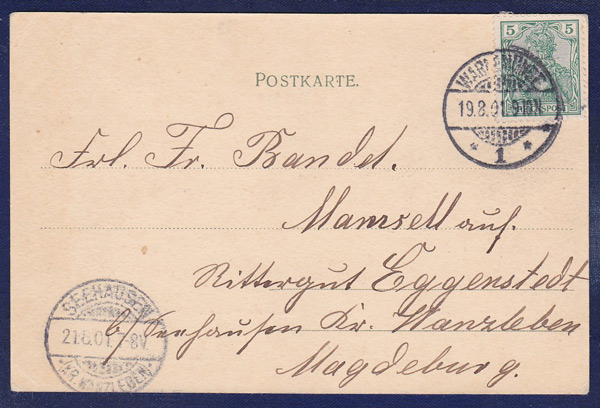 5 5
REICHSPOST
POSTKARTE.
WARNEMÜNDE
19.8.01. 9-10N
* 1 *
Frl. Fr. Bandet.
Mamsell auf.
Rittergut Eggenstedt
b/ Seehausen Kr. Wanzleben
Magdeburg.
SEEHAUSEN
21.8.01. 7-8V.
(KR. WANZLEBEN)